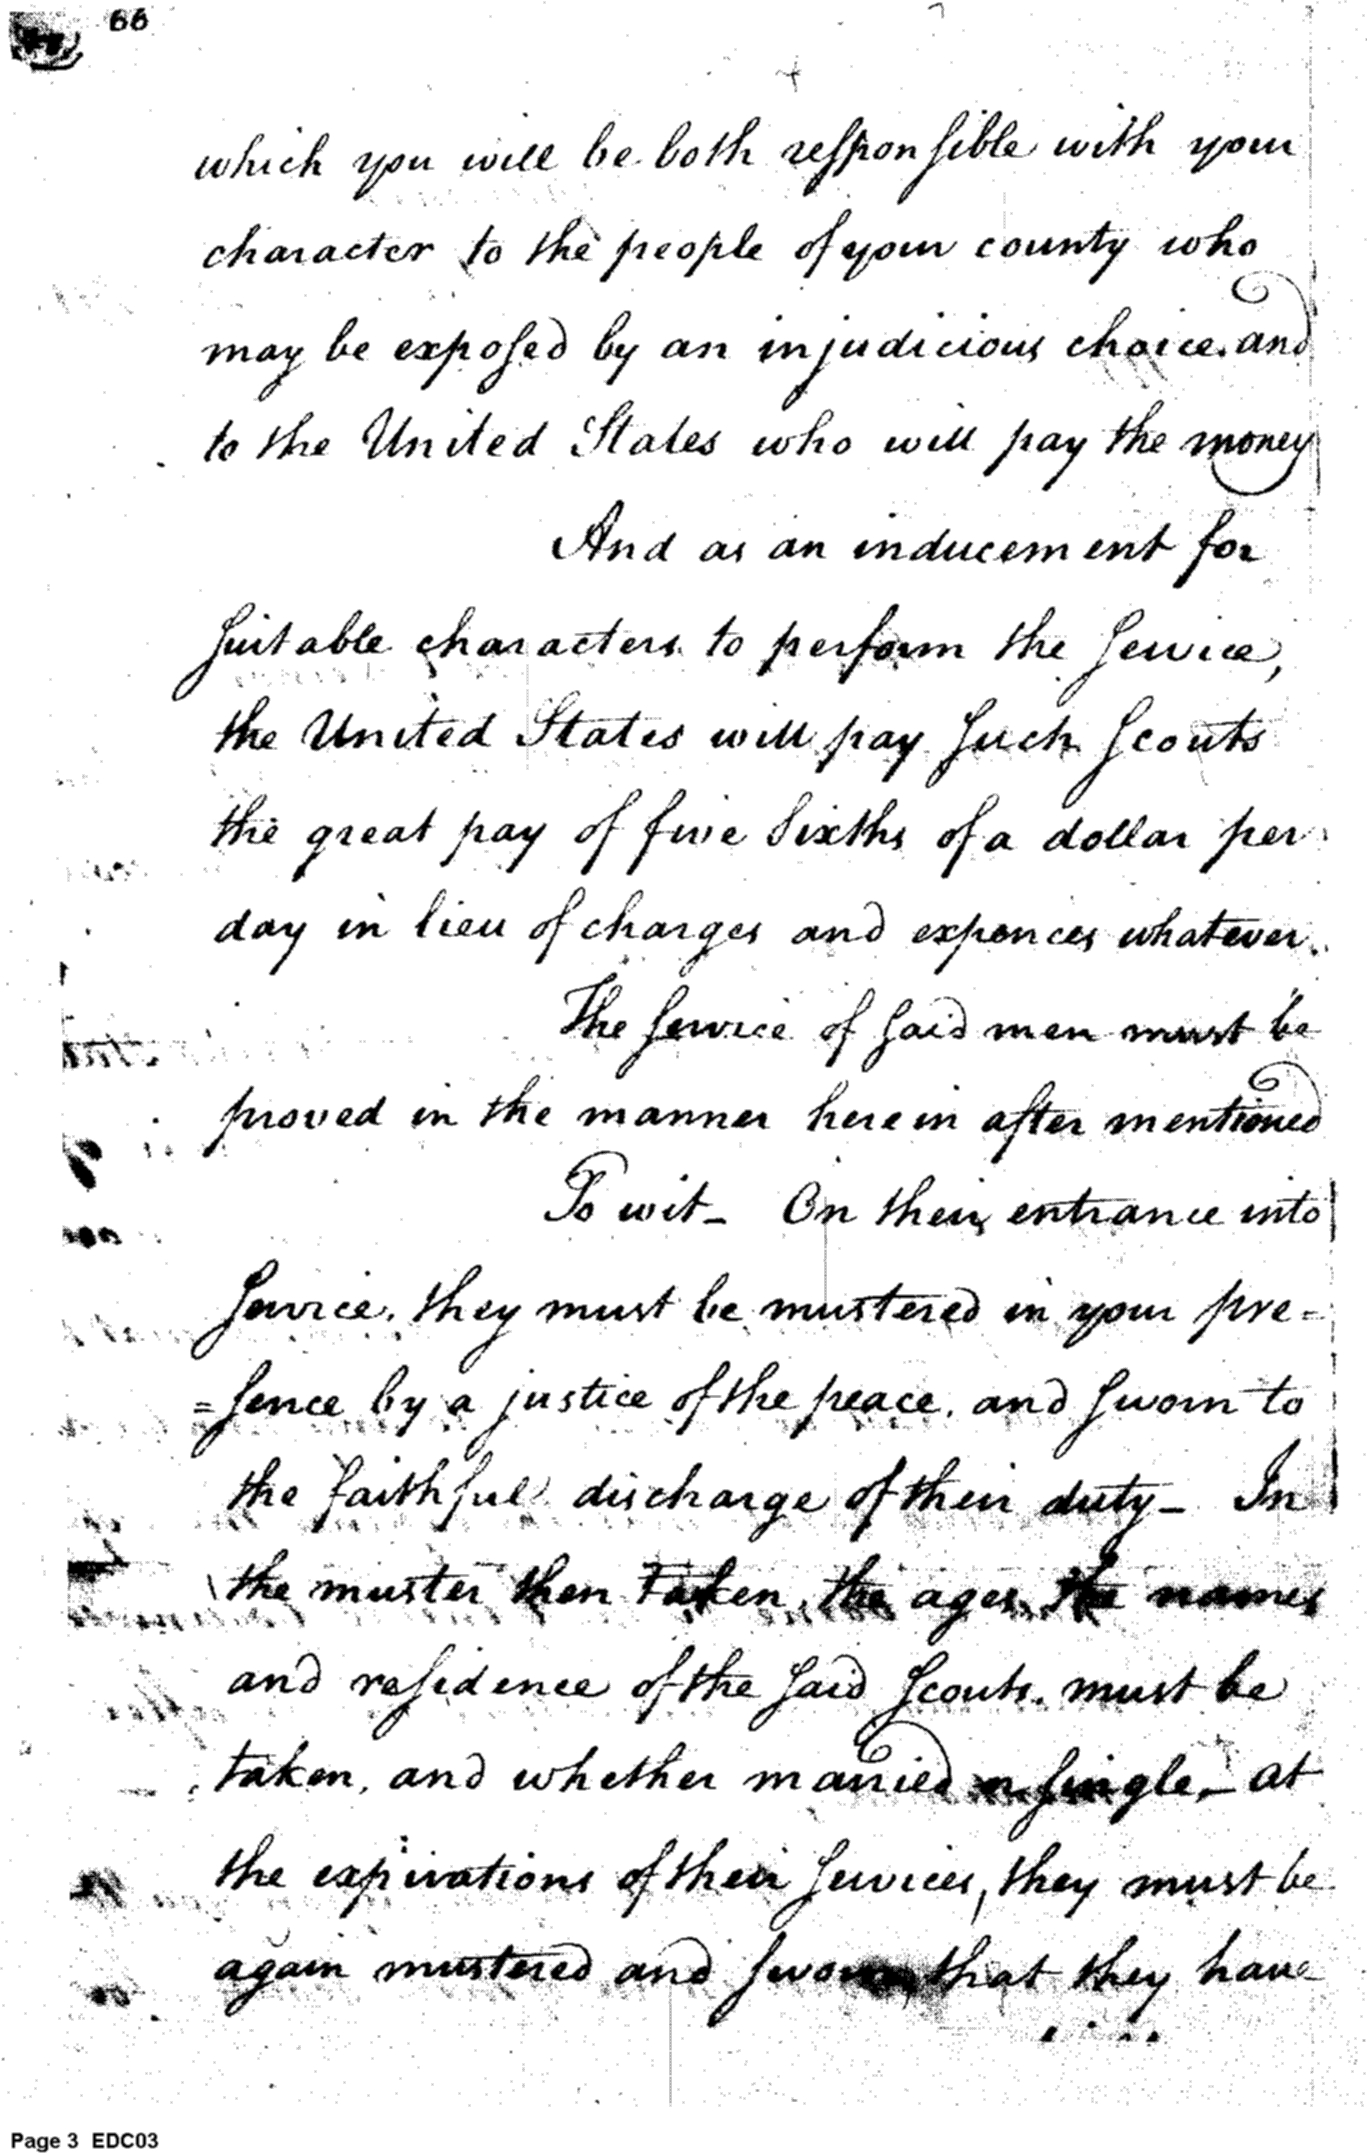 66
which you will be both responsible with your
character to the people of your county who
may be exposed by an injudicious choice. and
to the United States who will pay the money
And as an inducement for
suitable characters to perform the service,
the United States will pay such scouts
the great pay of five sixths of a dollar per
day in lieu of charges and expences whatever.
The service of said men must be
proved in the manner herein after mentioned
To wit - On their entrance into
service. they must be mustered in your pre=
=sence by a justice of the peace. and sworn to
the faithful discharge of their duty - In
the muster then taken, the ages the names
and residence of the said scouts. must be
taken, and whether married or single, - at
the expirations of their services, they must be
again mustered and sworn that they have
Page 3 EDC03